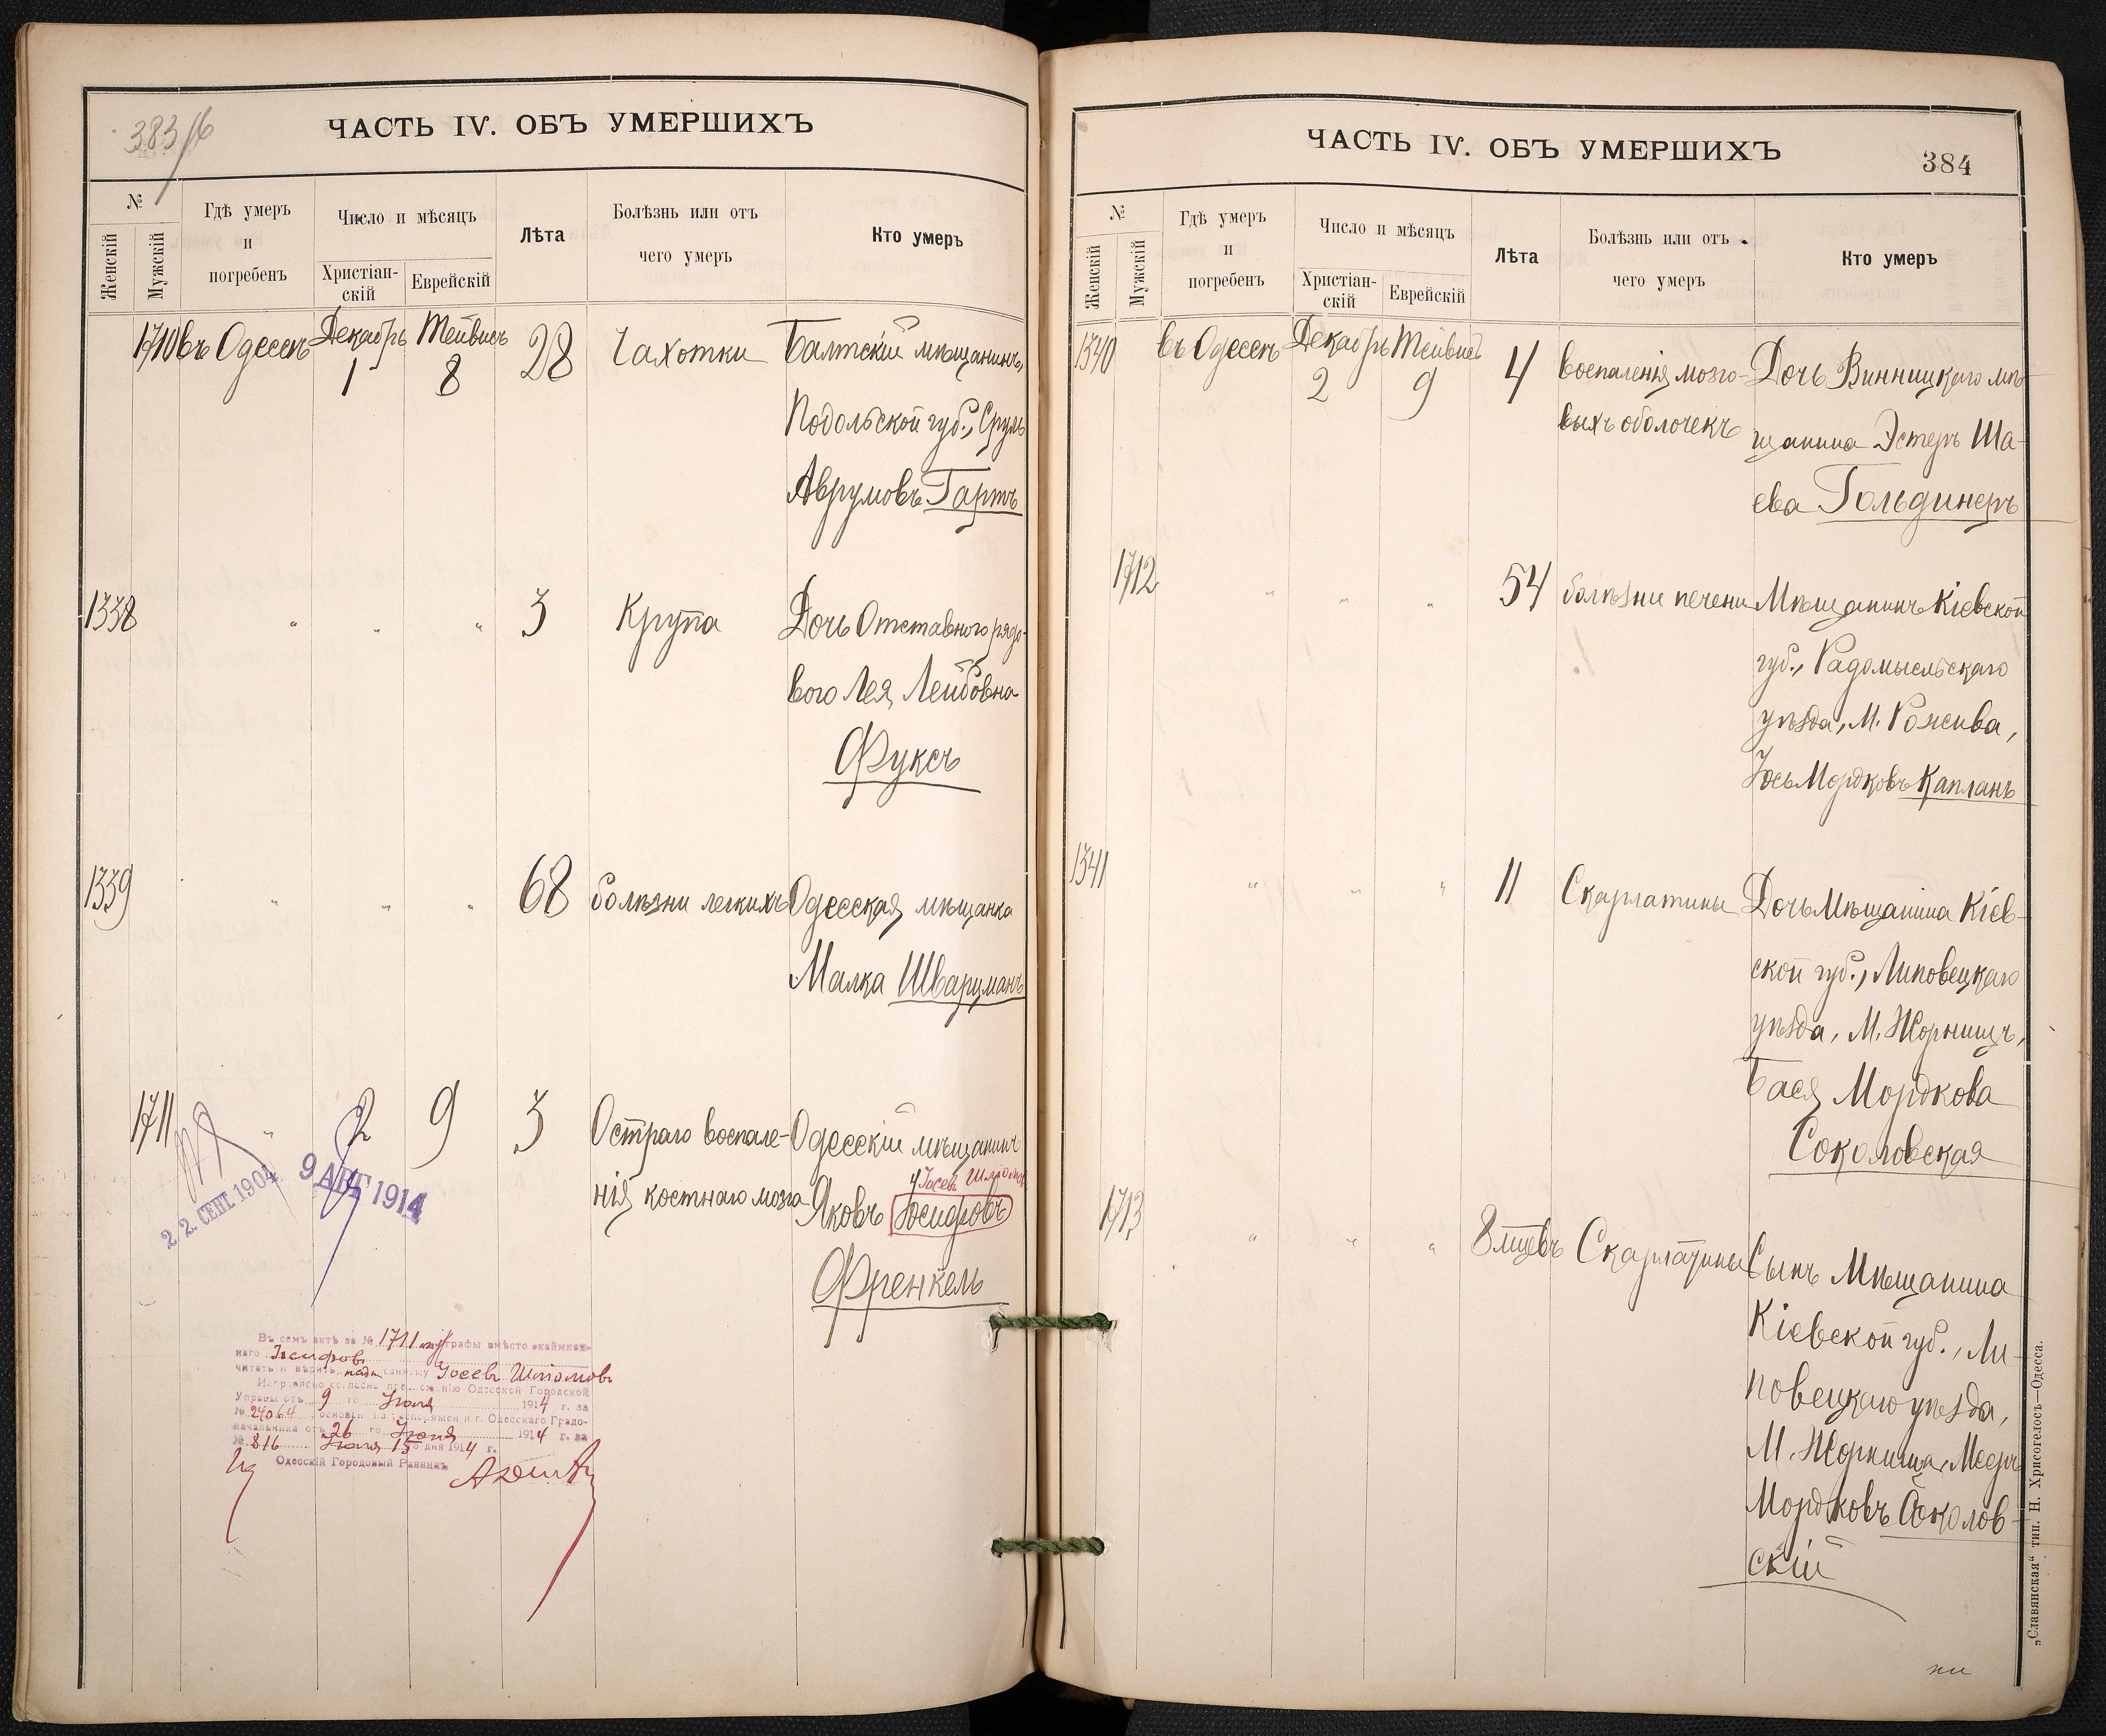 383/б
ЧАСТЬ IV. ОБЪ УМЕРШИХЪ
№
Женскій
Мужскій
Гдѣ умеръ
и
погребенъ
Число и мѣсяцъ
Христіан-
скій
Еврейскій
Лѣта
Болѣзнь или отъ
чего умеръ
Кто умеръ
1710 въ Одессѣ Декабрь 1 Тейвисъ 8 28 Чахотки Балтскій мѣщанинъ,
Подольской губ., Сруль
Аврумовъ Гартъ
1338 " " " 3 Крупа Дочь Отставного рядо-
вого Лея Лейбовна
Фуксъ
1339 " " " 68 болѣзни легкихъ Одесская мѣщанка
Малка Шварцманъ
1711 " 2 9 3 Остраго воспале- Одесскій мѣщанинъ
Іосевъ Шліомовъ
нія костнаго мозга Яковъ Іосифовъ
Френкель
22. СЕНТ. 1904
9 АВГ 1914
Въ семъ актѣ за № 1711 муж графы вмѣсто окаймлен-
наго Іосифовъ
читать и вѣрить надписанному Іосевъ Шліомовъ
Исправлено согласно предложенію Одесской Городской
Управы отъ 9 го Іюля 1914 г. за
№ 24064, основан. на распоряженіи г. Одесскаго Градо-
начальника отъ 26 го Іюня 1914 г. за
№ 816 Іюля 15 го дня 1914 г.
Одесскій Городовый Раввинъ
ЧАСТЬ IV. ОБЪ УМЕРШИХЪ
384
№
Женскій
Мужскій
Гдѣ умеръ
и
погребенъ
Число и мѣсяцъ
Христіан-
скій
Еврейскій
Лѣта
Болѣзнь или отъ
чего умеръ
Кто умеръ
1340 въ Одессѣ Декабрь 2 Тейвисъ 9 4 воспаленія мозго- Дочь Винницкаго мѣ-
выхъ оболочекъ щанина Эстеръ Ша-
ева Гольдинеръ
1712 " " " 54 болѣзни печени Мѣщанинъ Кіевской
губ., Радомысльскаго
уѣзда, М. Рожива,
Іось Мордковъ Капланъ
1341 " " " 11 Скарлатины Дочь Мѣщанина Кіев-
ской губ., Липовецкаго
уѣзда, М. Жорнищъ,
Бася Мордкова
Соколовская
1713 " " " 8 мцевъ Скарлатины Сынъ Мѣщанина
Кіевской губ., Ли-
повецкаго уѣзда,
М. Жорнища, Мееръ
Мордковъ Соколов-
скій
„Славянская“ тип. Н. Хрисогелосъ—Одесса.